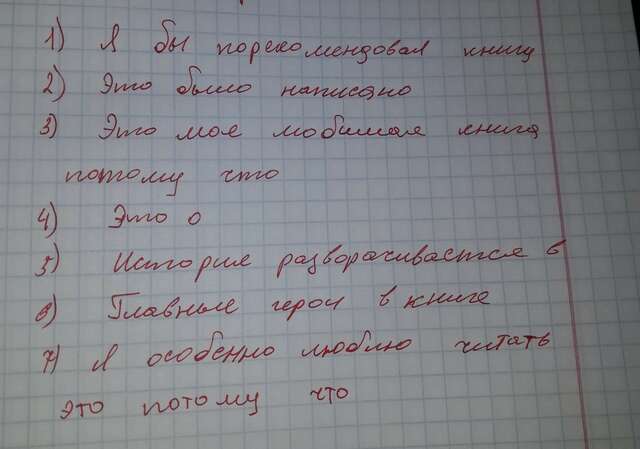 1) Я бы порекомендовал книгу
2) Это было написано
3) Это моя любимая книга
потому что
4) Это о
5) История разворачивается в
6) Главные герои в книге
7) Я особенно люблю читать
это потому что